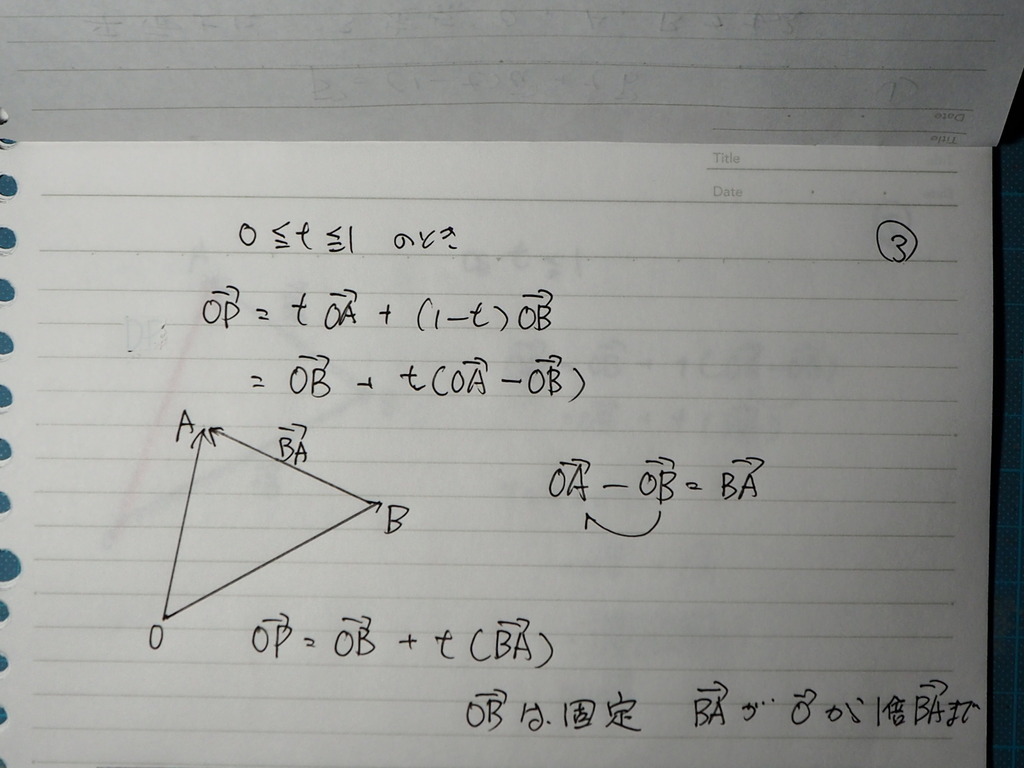 Title
Date
0≦t≦1 のとき
③
OP→ = tOA→ + (1-t)OB→
= OB→ + t(OA→ - OB→)
A
BA→
B
O
OA→ - OB→ = BA→
OP→ = OB→ + t(BA→)
OB→は固定 BA→が 0→から1倍BA→まで